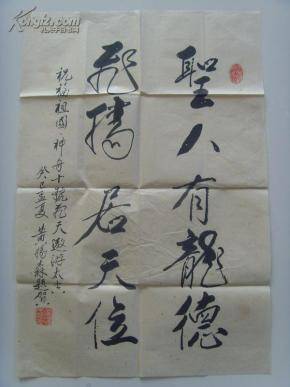 聖人有龍德
飛騰居天位
祝福祖國 神舟十號飛天遨游太空
癸巳孟夏 黄楊森題賀